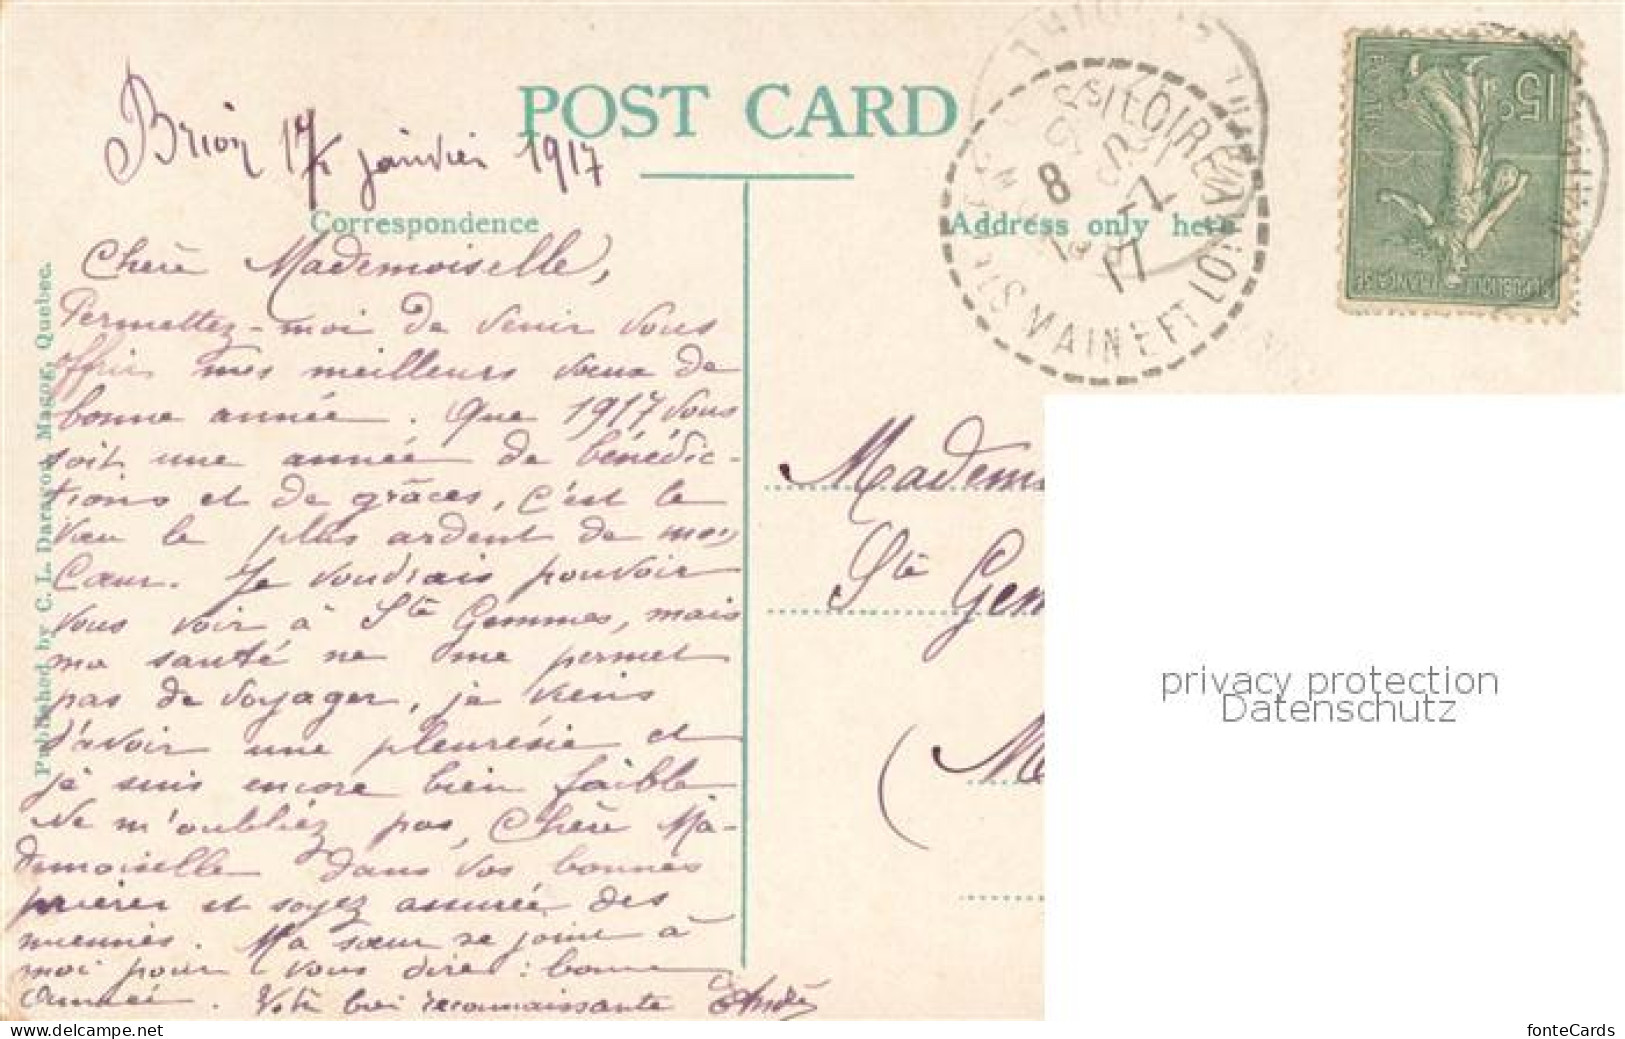 POST CARD
Brion 17 janvier 1917
Correspondence
Address only here
Published by C. L. Daragon, Magog, Quebec.
Chère Mademoiselle,
Permettez-moi de venir vous
offrir mes meilleurs vœux de
bonne année. Que 1917 vous
soit une année de bénédic-
tions et de grâces, c'est le
vœu le plus ardent de mon
Cœur. Je voudrais pouvoir
vous voir à Ste Gemmes, mais
ma santé ne me permet
pas de voyager, je viens
d'avoir une pleurésie et
je suis encore bien faible
Ne m'oubliez pas, Chère Ma-
demoiselle dans vos bonnes
prières et soyez assurée des
miennes. Ma sœur se joint à
moi pour vous dire : bonne
Année. Votre bien reconnaissante
15c
REPUBLIQUE FRANÇAISE
S/LOIRE
MAINE ET LOIRE
8
17
Madem
Ste Gem
(M
privacy protection
Datenschutz
fonteCards